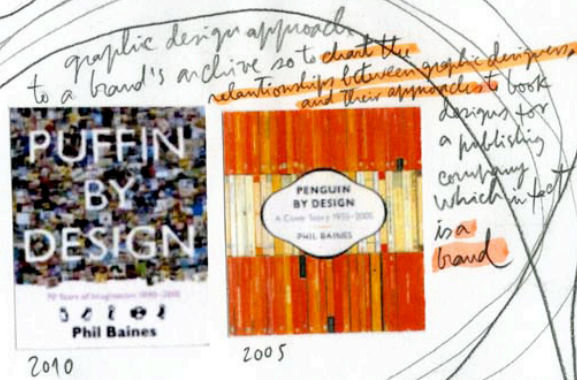 graphic design approach
to a brand's archive so to chart the
relationships between graphic designers,
and their approaches to book
designs for
a publishing
company
which in fact
is a
brand
PUFFIN
BY
DESIGN
70 Years of Imagination 1940–2010
Phil Baines
2010
PENGUIN
BY DESIGN
A Cover Story 1935–2005
PHIL BAINES
2005